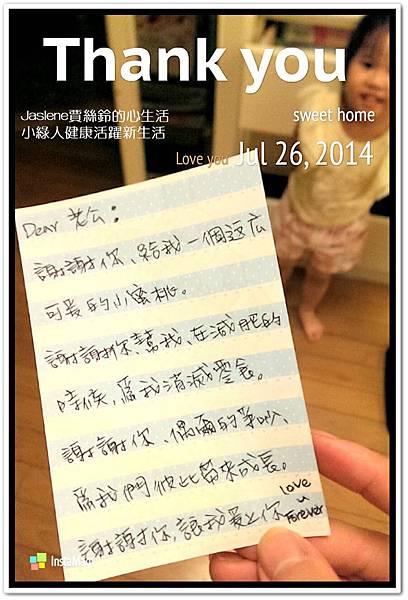 Thank you
Jaslene賈絲鈴的心生活
sweet home
小綠人健康活躍新生活
Love you Jul 26, 2014
Dear 老公：
謝謝你、給我一個這麼
可愛的小蜜桃。
謝謝你、幫我、在減肥的
時候，為我消滅零食。
謝謝你、偶爾的爭吵、
為我們彼此帶來成長。
謝謝你，讓我愛上你
Love
u
Forever
InstaMag